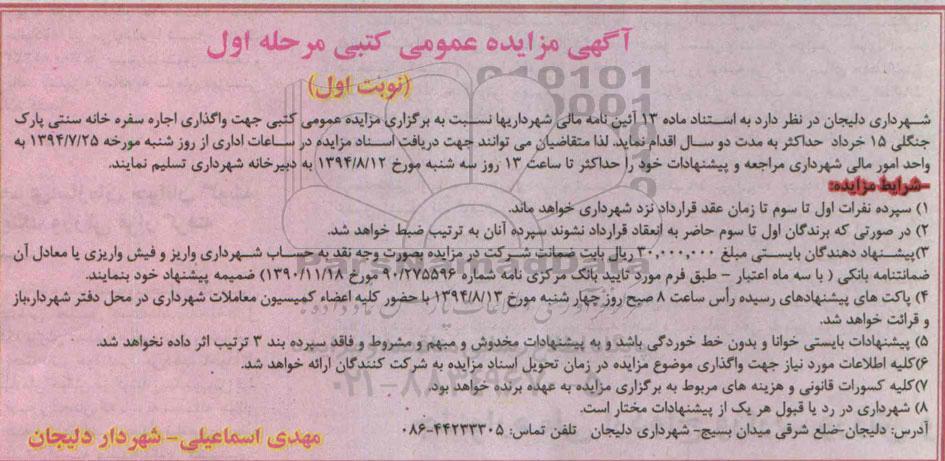 آگهی مزایده عمومی کتبی مرحله اول
(نوبت اول)
شهرداری دلیجان در نظر دارد به استناد ماده ۱۳ آئین نامه مالی شهرداریها نسبت به برگزاری مزایده عمومی کتبی جهت واگذاری اجاره سفره خانه سنتی پارک
جنگلی ۱۵ خرداد حداکثر به مدت دو سال اقدام نماید. لذا متقاضیان می توانند جهت دریافت اسناد مزایده در ساعات اداری از روز شنبه مورخه ۱۳۹۴/۷/۲۵ به
واحد امور مالی شهرداری مراجعه و پیشنهادات خود را حداکثر تا ساعت ۱۳ روز سه شنبه مورخ ۱۳۹۴/۸/۱۲ به دبیرخانه شهرداری تسلیم نمایند.
-شرایط مزایده:
۱) سپرده نفرات اول تا سوم تا زمان عقد قرارداد نزد شهرداری خواهد ماند.
۲) در صورتی که برندگان اول تا سوم حاضر به انعقاد قرارداد نشوند سپرده آنان به ترتیب ضبط خواهد شد.
۳)پیشنهاد دهندگان بایستی مبلغ ۳۰,۰۰۰,۰۰۰ ریال بابت ضمانت شرکت در مزایده بصورت وجه نقد به حساب شهرداری واریز و فیش واریزی یا معادل آن
ضمانتنامه بانکی ( با سه ماه اعتبار - طبق فرم مورد تایید بانک مرکزی نامه شماره ۹۰/۲۷۵۵۹۶ مورخ ۱۳۹۰/۱۱/۱۸) ضمیمه پیشنهاد خود بنمایند.
۴) پاکت های پیشنهادهای رسیده رأس ساعت ۸ صبح روز چهار شنبه مورخ ۱۳۹۴/۸/۱۳ با حضور کلیه اعضاء کمیسیون معاملات شهرداری در محل دفتر شهردار،باز
و قرائت خواهد شد.
۵) پیشنهادات بایستی خوانا و بدون خط خوردگی باشد و به پیشنهادات مخدوش و مبهم و مشروط و فاقد سپرده بند ۳ ترتیب اثر داده نخواهد شد.
۶)کلیه اطلاعات مورد نیاز جهت واگذاری موضوع مزایده در زمان تحویل اسناد مزایده به شرکت کنندگان ارائه خواهد شد.
۷)کلیه کسورات قانونی و هزینه های مربوط به برگزاری مزایده به عهده برنده خواهد بود.
۸) شهرداری در رد یا قبول هر یک از پیشنهادات مختار است.
آدرس: دلیجان-ضلع شرقی میدان بسیج- شهرداری دلیجان تلفن تماس: ۴۴۲۳۳۳۰۵-۰۸۶
مهدی اسماعیلی- شهردار دلیجان